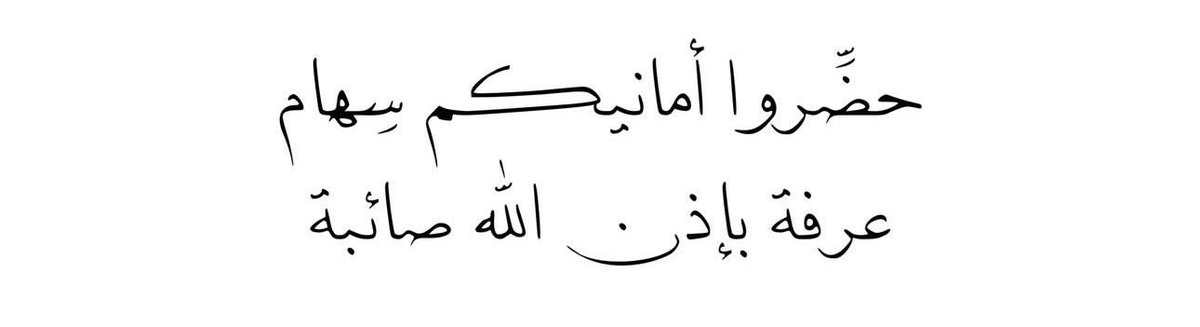 حضِّروا أمانيكم سِهام
عرفة بإذن الله صائبة